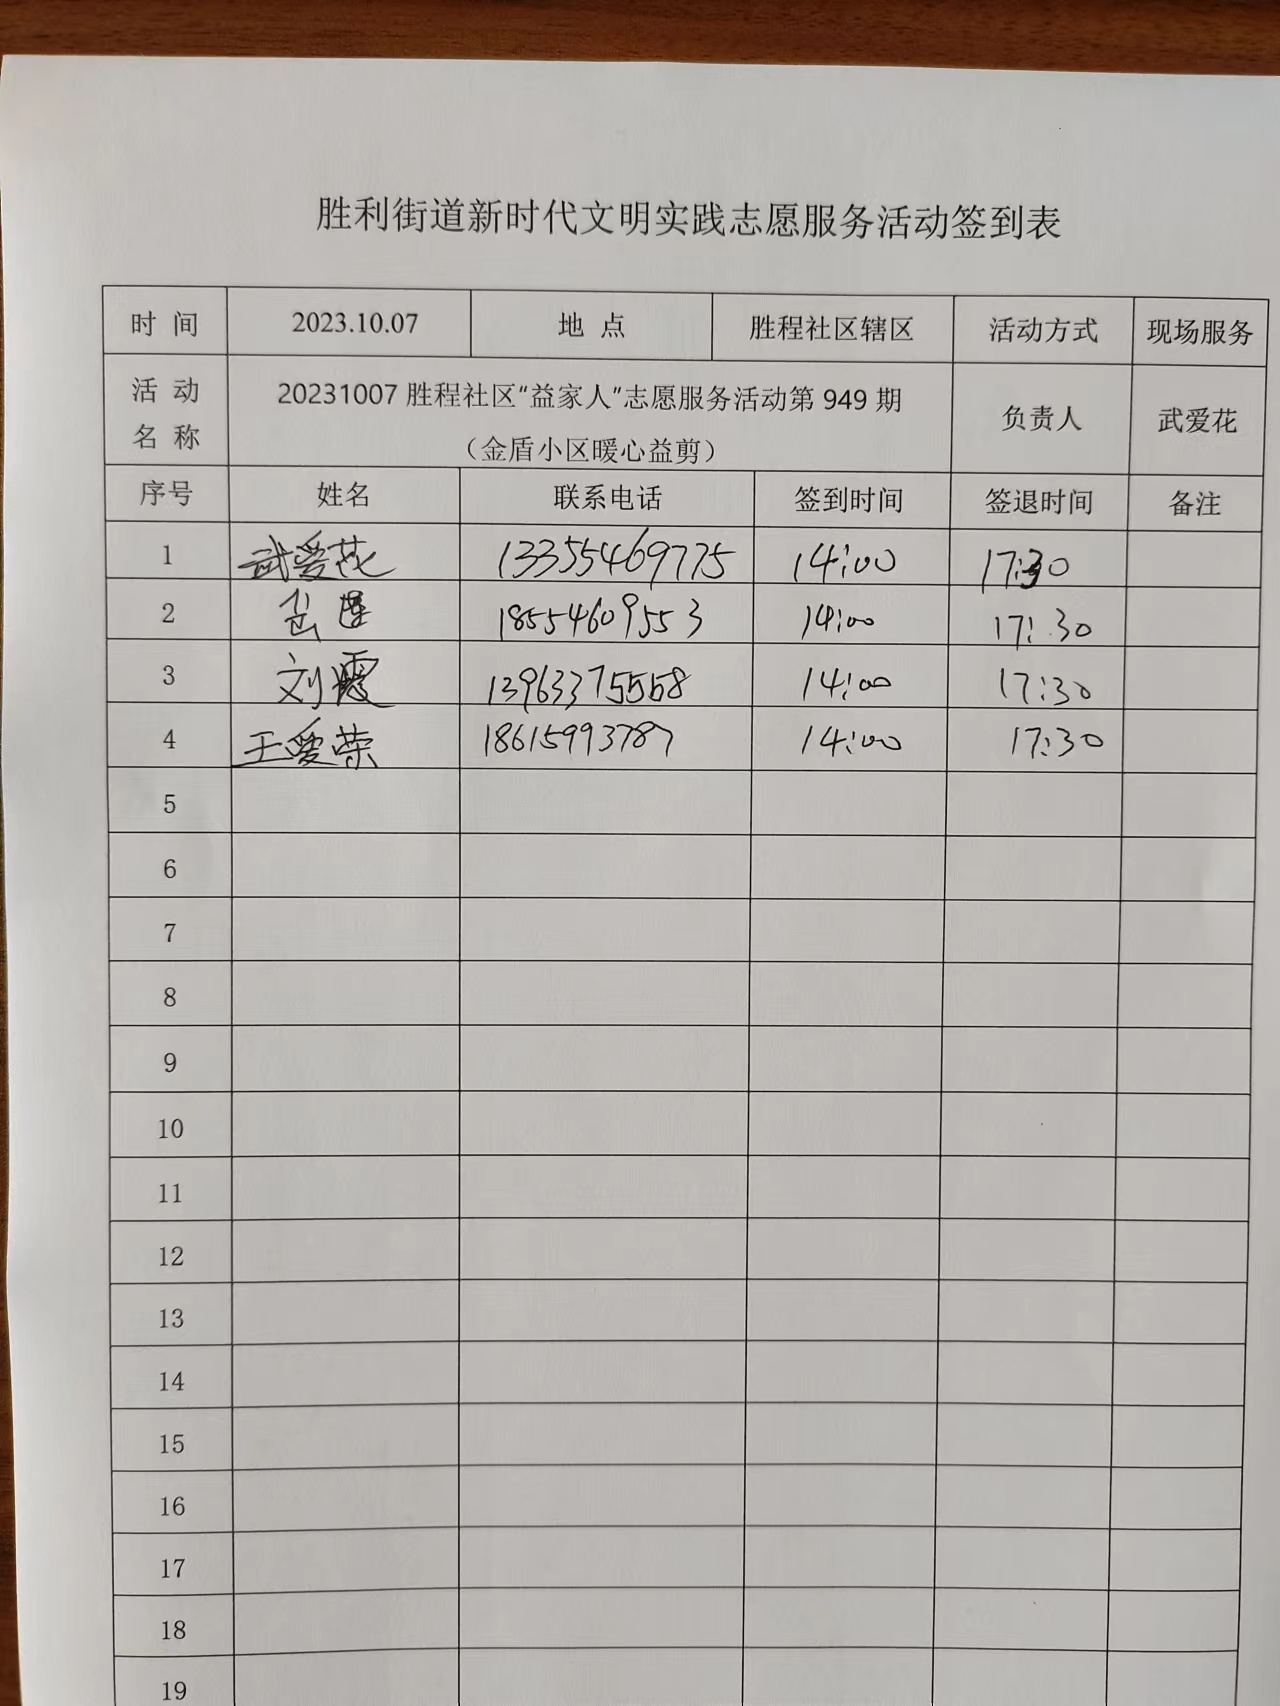 胜利街道新时代文明实践志愿服务活动签到表
时 间 2023.10.07 地 点 胜程社区辖区 活动方式 现场服务
活 动 名 称 20231007 胜程社区“益家人”志愿服务活动第 949 期 负责人 武爱花
（金盾小区暖心益剪）
序号 姓名 联系电话 签到时间 签退时间 备注
1 武爱花 13355469775 14:00 17:30
2 18554609553 14:00 17:30
3 刘霞 13963375568 14:00 17:30
4 王爱荣 18615993787 14:00 17:30
5
6
7
8
9
10
11
12
13
14
15
16
17
18
19